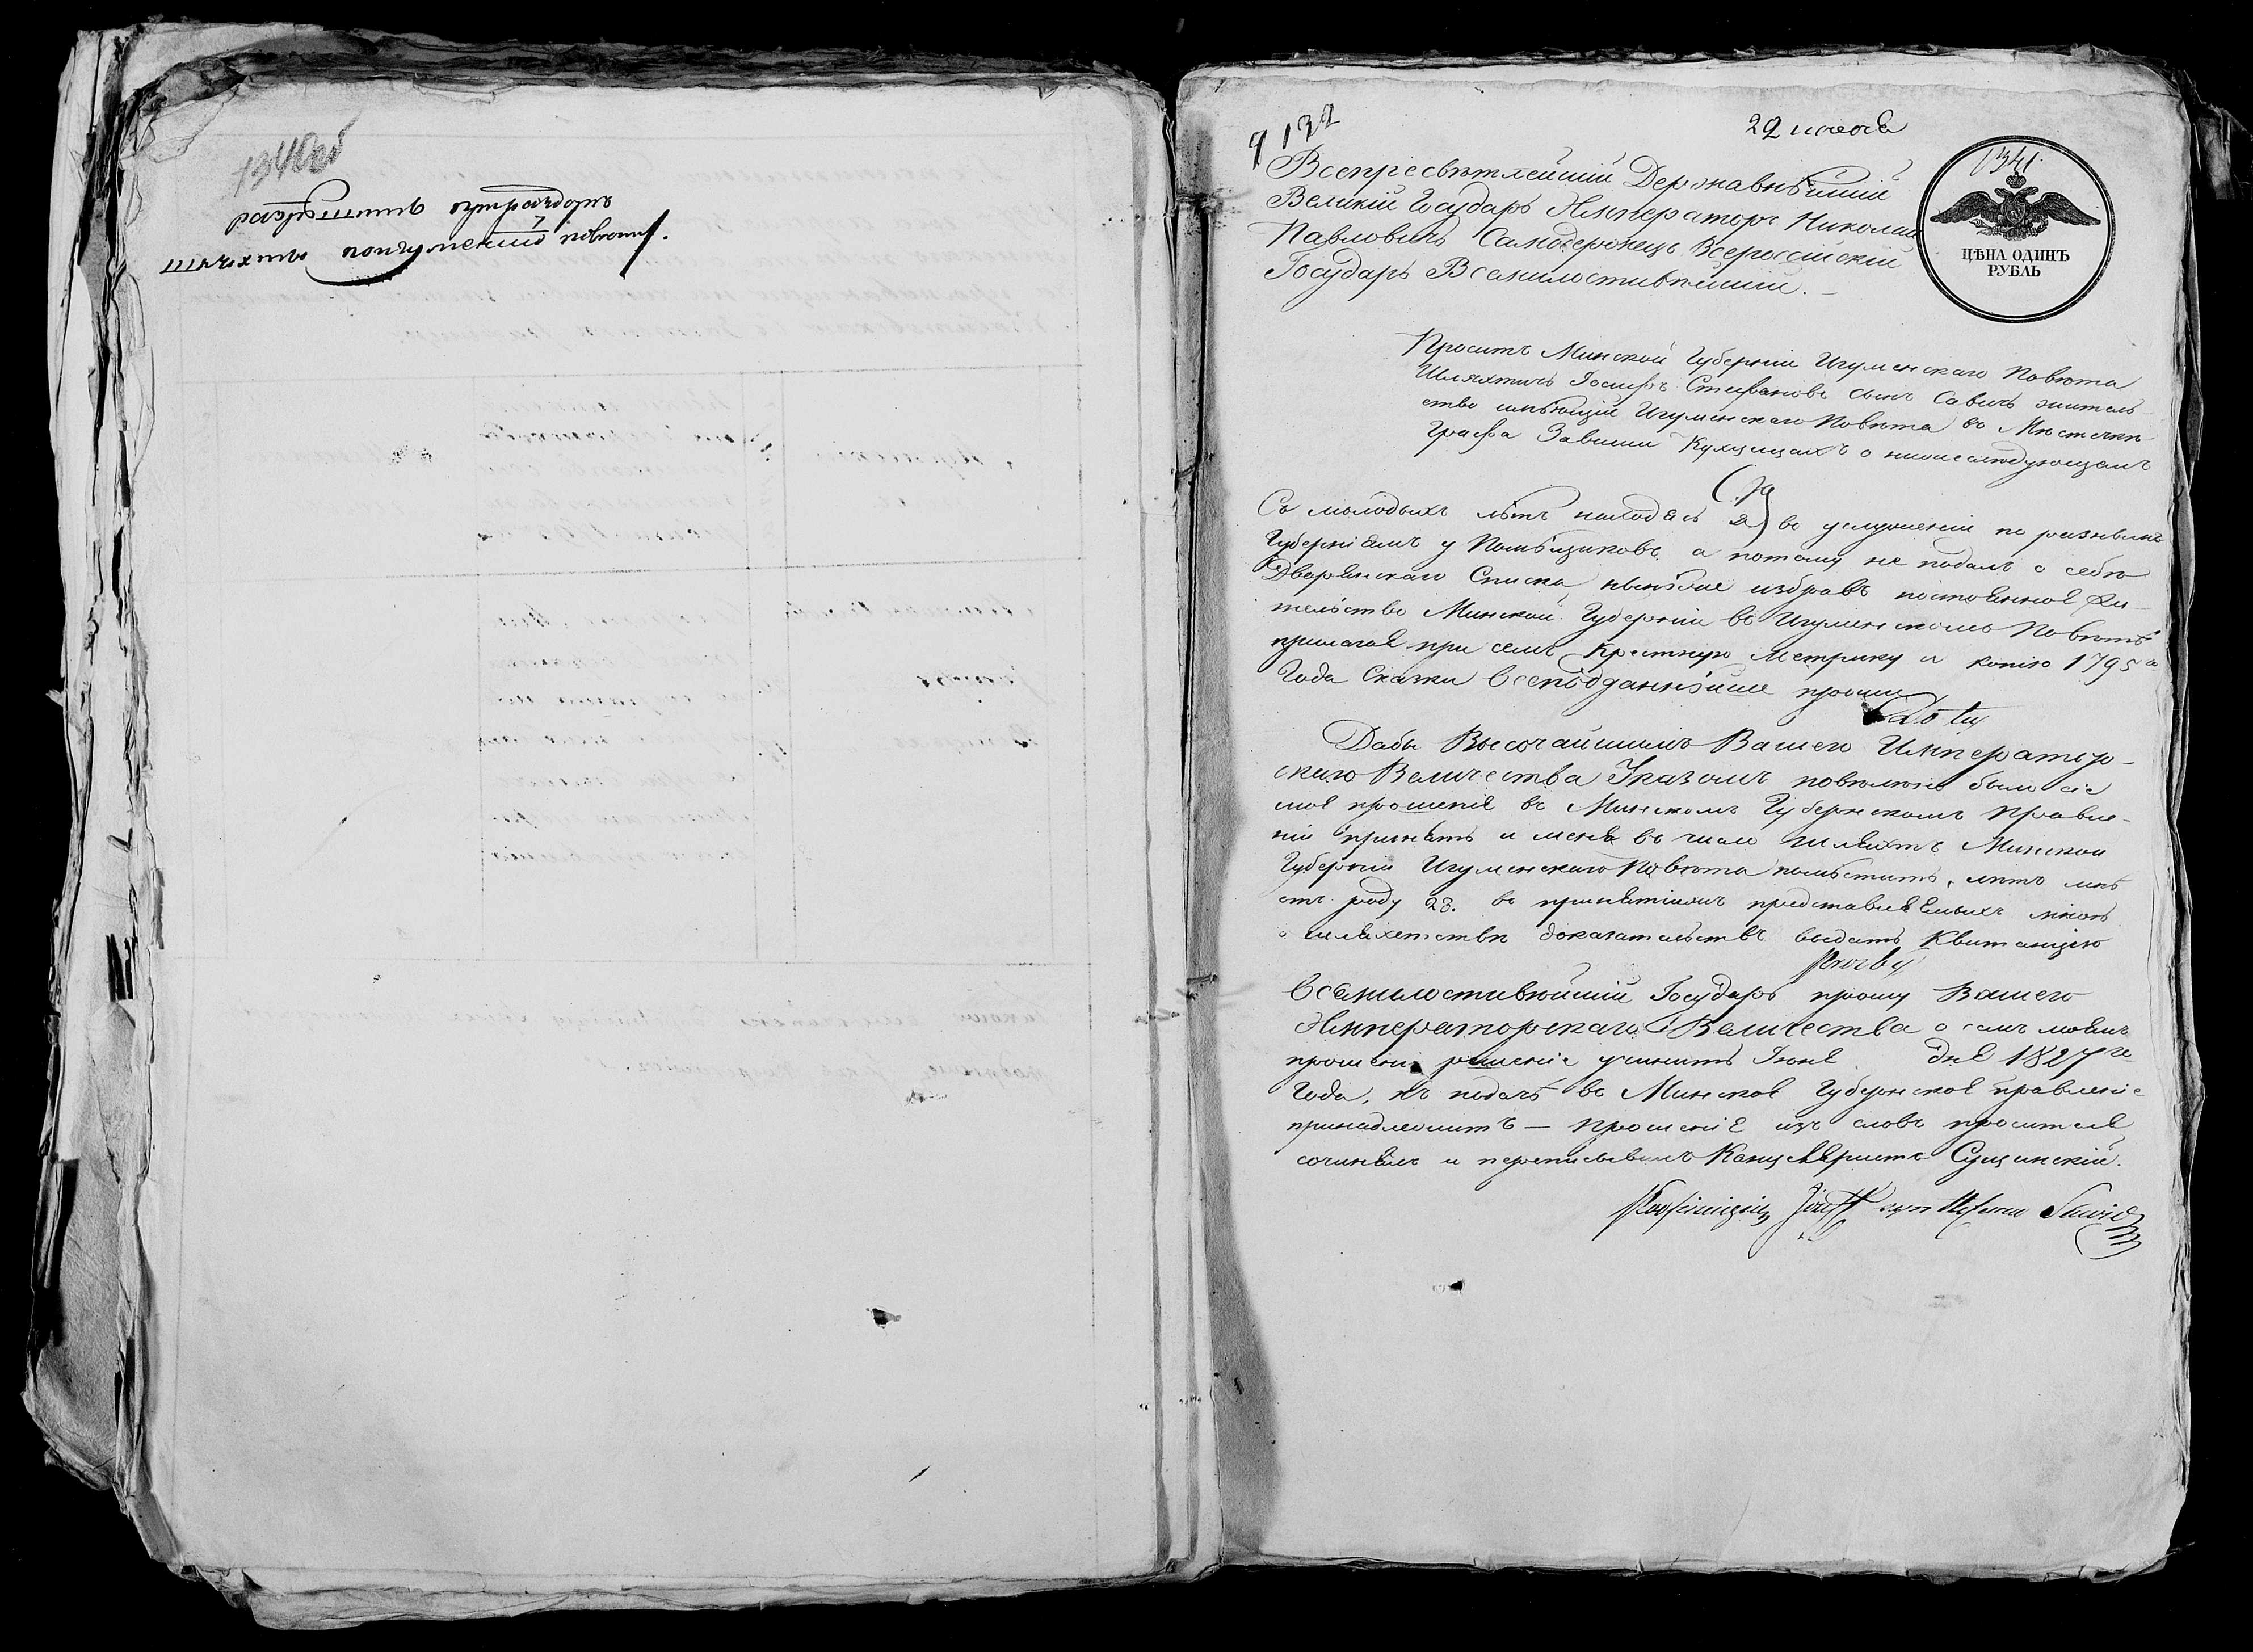 1340об
шляхты по игуменскому повету.
9 132
22 июня
1341
ЦѢНА ОДИНЪ
РУБЛЬ
Всепресвѣтлейшій Державнѣйшій
Великій Государь Императоръ Николай
Павловичъ Самодержецъ Всероссійскій
Государь Всемилостивѣйшій.
Проситъ Минской Губерніи Игуменскаго Повѣта
Шляхтичъ Іосифъ Стефановъ сынъ Савичъ житель
ство имѣющій Игуменскаго Повѣта въ Мѣстечкѣ
Графа Завиши Кухцицахъ о нижеслѣдующемъ
Съ молодыхъ лѣтъ находясь я въ услуженіи по разнымъ
Губерніямъ у Помѣщиковъ а потому не подалъ о себѣ
Дворянскаго Списка, нынѣже избравъ постоянное жи-
тельство Минской Губерніи въ Игуменскомъ Повѣтѣ
прилагая при семъ Крестную Метрику и копію 1795го
Года Сказки Всеподданнѣйше прошу
Do tey
Дабы Высочайшимъ Вашего Император-
скаго Величества Указомъ повѣлено было сіе
мое прошеніе въ Минскомъ Губернскомъ Правле-
ніи принять и меня въ число Шляхтъ Минской
Губерніи Игуменскаго Повѣта помѣстить, лѣтъ мнѣ
отъ роду 28. въ принятіи представляемыхъ мною
о шляхетствѣ доказательствъ выдать Квитанцію
Prozby
Всемилостивѣйшій Государь прошу Вашего
Императорскаго Величества о семъ моемъ
прошеніи рѣшеніе учинить Іюня дня 1827го
Года, къ подачѣ въ Минское Губернское правленіе
принадлежитъ — прошеніе изъ словъ просителя
сочинялъ и переписывалъ Канцеляристъ Сущинскій.
Józeff syn Stefana Sawicz